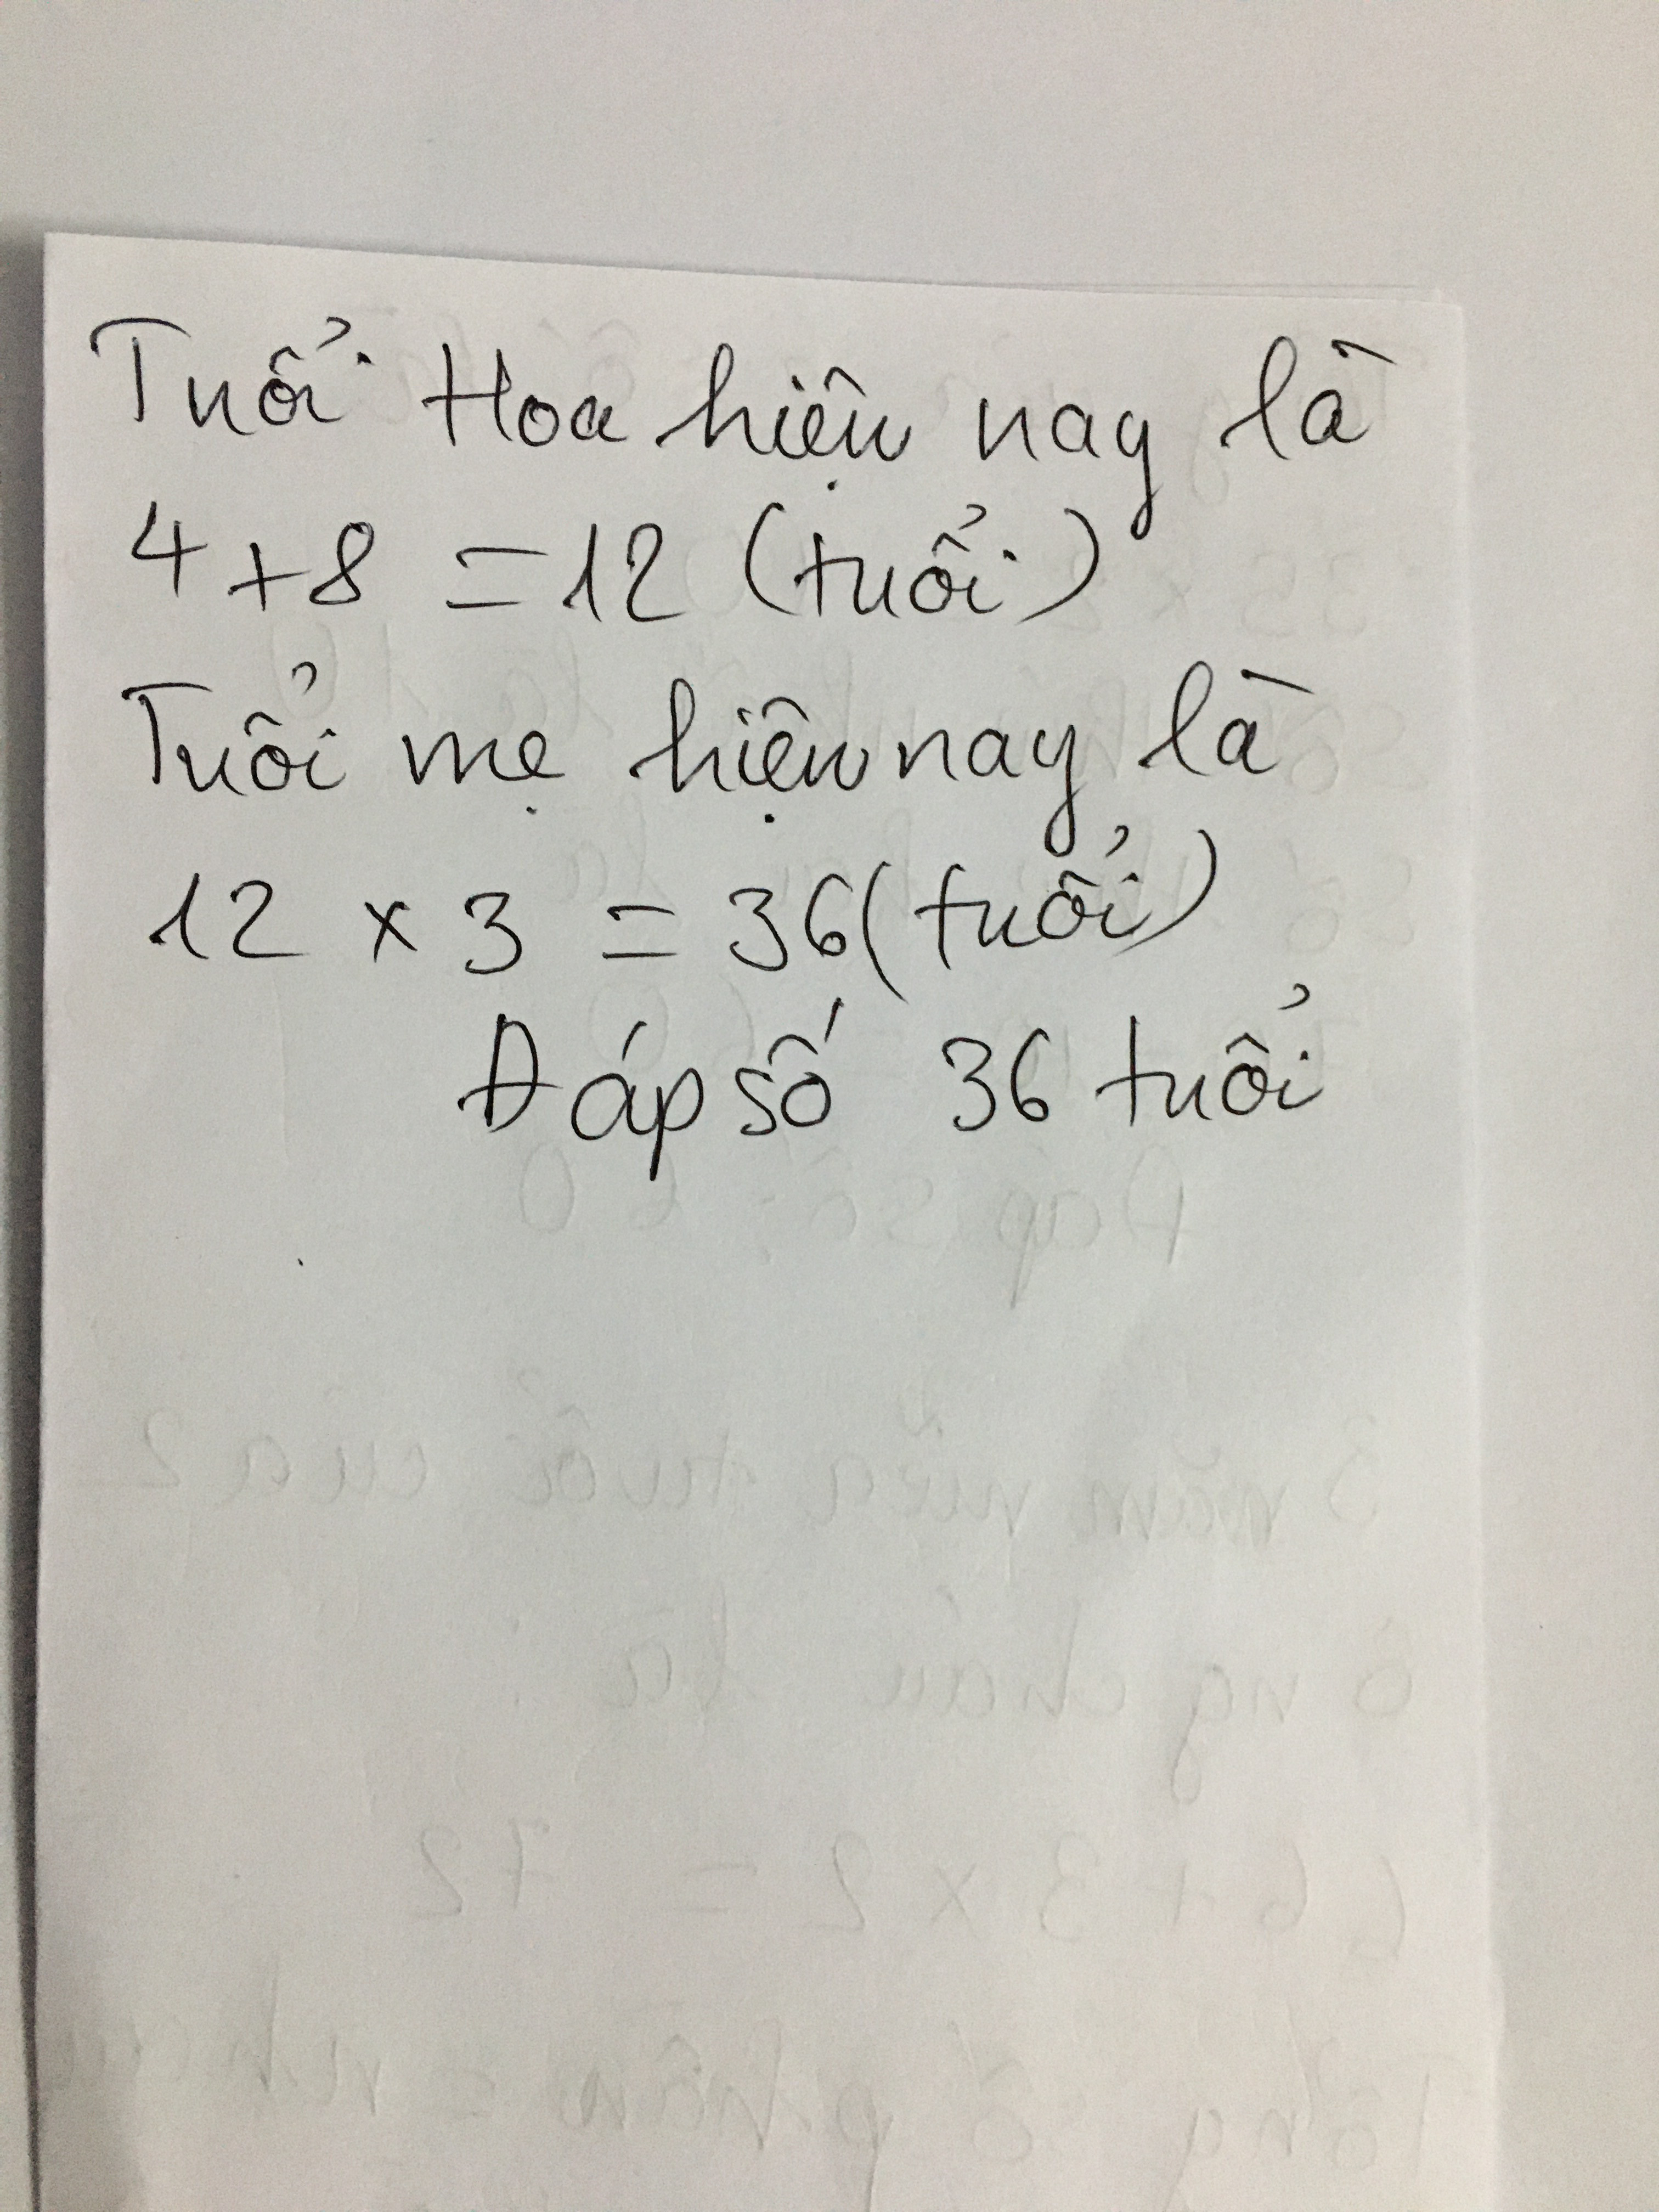 Tuổi Hoa hiện nay là
4 + 8 = 12 (tuổi)
Tuổi mẹ hiện nay là
12 x 3 = 36 (tuổi)
Đáp số 36 tuổi